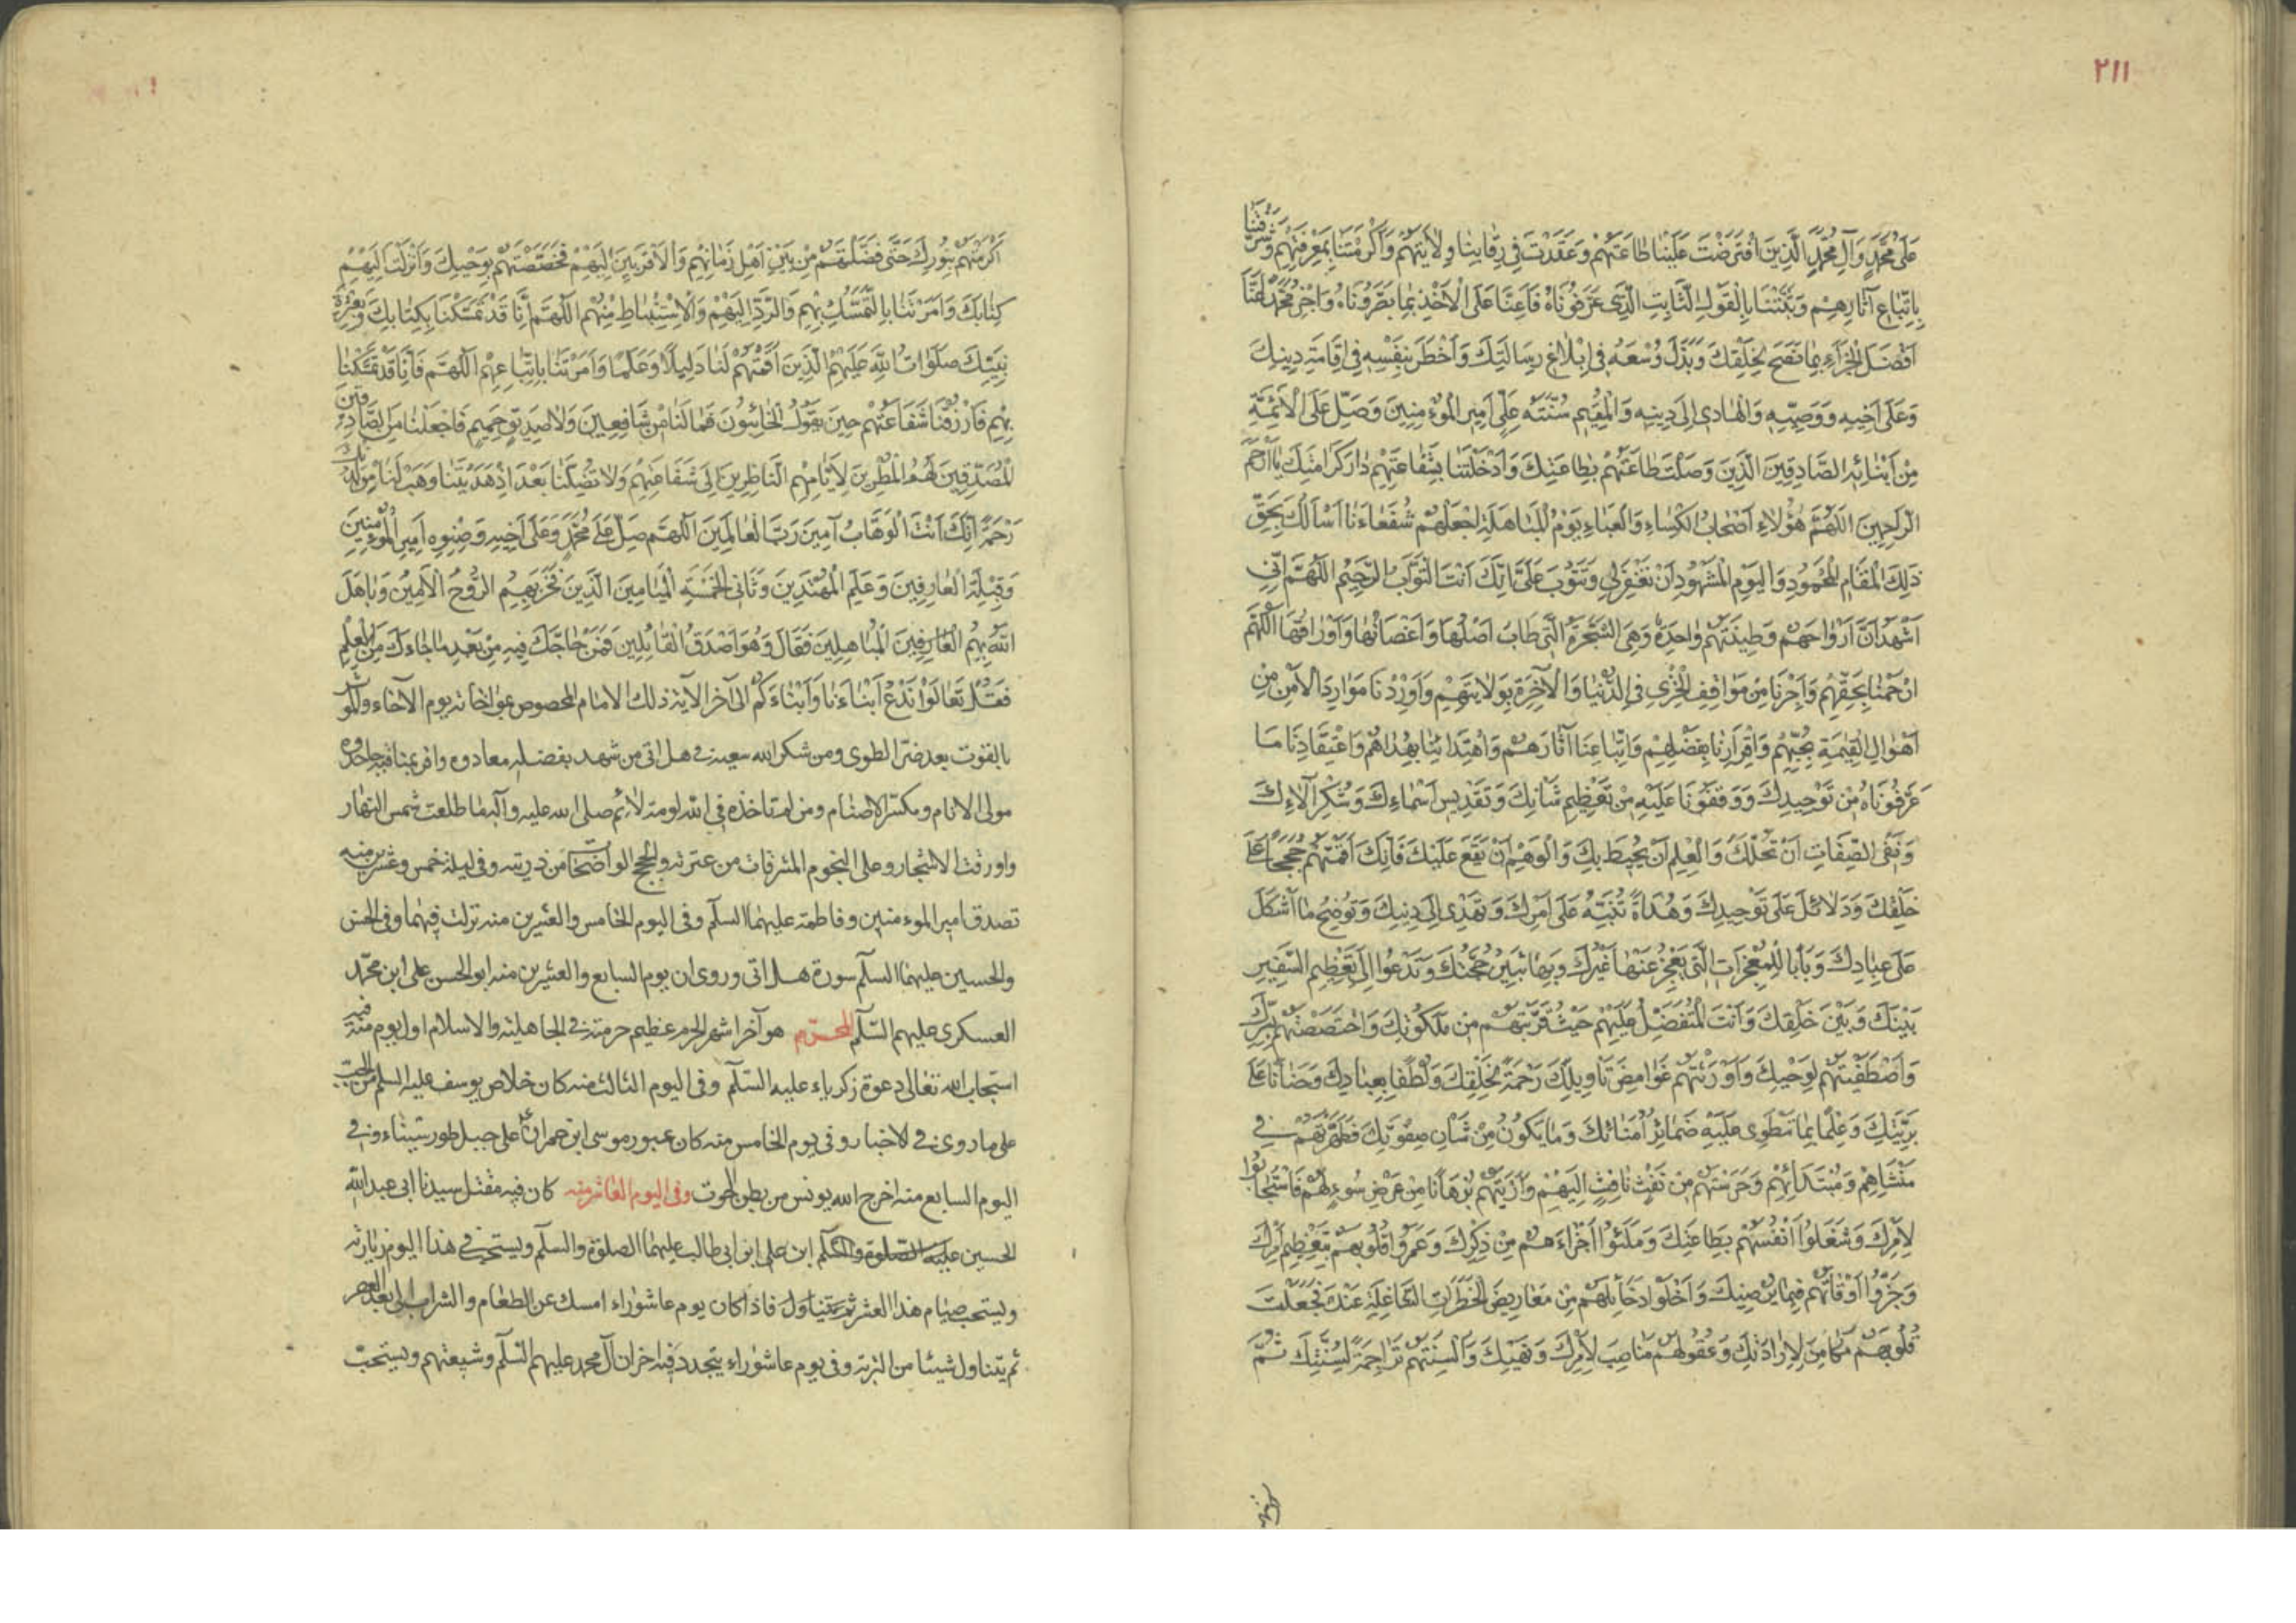 ٢١١
عَلَى مُحَمَّدٍ وَآلِ مُحَمَّدٍ الَّذِينَ افْتَرَضْتَ عَلَيْنَا طَاعَتَهُمْ وَعَقَدْتَ فِي رِقَابِنَا وِلَايَتَهُمْ وَأَكْرَمْتَنَا بِمَعْرِفَتِهِمْ وَشَرَّفْتَنَا
بِاتِّبَاعِ آثَارِهِمْ وَثَبَّتْتَنَا بِالْقَوْلِ الثَّابِتِ الَّذِي عَرَّفُونَاهُ فَأَعِنَّا عَلَى الْأَخْذِ بِمَا بَصَّرُونَاهُ وَاجْزِ مُحَمَّدًا عَنَّا
أَفْضَلَ الْجَزَاءِ بِمَا نَصَحَ لِخَلْقِكَ وَبَذَلَ وُسْعَهُ فِي إِبْلَاغِ رِسَالَتِكَ وَأَخْطَرَ بِنَفْسِهِ فِي إِقَامَةِ دِينِكَ
وَعَلَى أَخِيهِ وَوَصِيِّهِ وَالْهَادِي إِلَى دِينِهِ وَالْقَيِّمِ سُنَّتَهُ عَلِيٍّ أَمِيرِ الْمُؤْمِنِينَ وَصَلِّ عَلَى الْأَئِمَّةِ
مِنْ أَبْنَائِهِ الصَّادِقِينَ الَّذِينَ وَصَلْتَ طَاعَتَهُمْ بِطَاعَتِكَ وَأَدْخَلْتَنَا بِشَفَاعَتِهِمْ دَارَ كَرَامَتِكَ يَا أَرْحَمَ
الرَّاحِمِينَ اللَّهُمَّ هَؤُلَاءِ أَصْحَابُ الْكِسَاءِ وَالْعَبَاءِ يَوْمَ الْمُبَاهَلَةِ اجْعَلْهُمْ شُفَعَاءَنَا أَسْأَلُكَ بِحَقِّ
ذَلِكَ الْمَقَامِ الْمَحْمُودِ وَالْيَوْمِ الْمَشْهُودِ أَنْ تَغْفِرَ لِي وَتَتُوبَ عَلَيَّ إِنَّكَ أَنْتَ التَّوَّابُ الرَّحِيمُ اللَّهُمَّ إِنِّي
أَشْهَدُ أَنَّ أَرْوَاحَهُمْ وَطِينَتَهُمْ وَاحِدَةٌ وَهِيَ الشَّجَرَةُ الَّتِي طَابَ أَصْلُهَا وَأَغْصَانُهَا وَأَوْرَاقُهَا اللَّهُمَّ
ارْحَمْنَا بِحَقِّهِمْ وَأَجِرْنَا مِنْ مَوَاقِفِ الْخِزْيِ فِي الدُّنْيَا وَالْآخِرَةِ بِوِلَايَتِهِمْ وَأَوْرِدْنَا مَوَارِدَ الْأَمْنِ مِنْ
أَهْوَالِ الْقِيمَةِ بِحُبِّهِمْ وَإِقْرَارِنَا بِفَضْلِهِمْ وَاتِّبَاعِنَا آثَارَهُمْ وَاهْتِدَائِنَا بِهُدَاهُمْ وَاعْتِقَادِنَا مَا
عَرَّفُونَاهُ مِنْ تَوْحِيدِكَ وَوَقَّفُونَا عَلَيْهِ مِنْ تَعْظِيمِ شَأْنِكَ وَتَقْدِيسِ أَسْمَاءِكَ وَشُكْرِ آلَاءِكَ
وَنَفْيِ الصِّفَاتِ أَنْ تَحُلَّكَ وَالْعِلْمِ أَنْ يُحِيطَ بِكَ وَالْوَهْمِ أَنْ يَقَعَ عَلَيْكَ فَإِنَّكَ أَقَمْتَهُمْ حُجَجًا عَلَى
خَلْقِكَ وَدَلَائِلَ عَلَى تَوْحِيدِكَ وَهُدَاةً تُنَبِّهُ عَلَى أَمْرِكَ وَتَهْدِي إِلَى دِينِكَ وَتُوضِحُ مَا أَشْكَلَ
عَلَى عِبَادِكَ وَبَابًا لِلْمُعْجِزَاتِ الَّتِي يَعْجِزُ عَنْهَا غَيْرُكَ وَبِهَا تَبِينُ حُجَّتُكَ وَتَدْعُوا إِلَى تَعْظِيمِ السَّفِيرِ
بَيْنَكَ وَبَيْنَ خَلْقِكَ وَأَنْتَ الْمُتَفَضِّلُ عَلَيْهِمْ حَيْثُ قَرَّبْتَهُمْ مِنْ مَلَكُوتِكَ وَاخْتَصَصْتَهُمْ بِسِرِّكَ
وَاصْطَفَيْتَهُمْ لِوَحْيِكَ وَأَوْرَثْتَهُمْ غَوَامِضَ تَأْوِيلِكَ رَحْمَةً لِخَلْقِكَ وَلُطْفًا بِعِبَادِكَ وَحَنَانًا عَلَى
بَرِيَّتِكَ وَعِلْمًا بِمَا تَنْطَوِي عَلَيْهِ ضَمَائِرُ أُمَنَائِكَ وَمَا يَكُونُ مِنْ شَأْنِ صِفْوَتِكَ فَطَهَّرْتَهُمْ فِي
مَنْشَاهِمْ وَمُبْتَدَائِهِمْ وَحَرَسْتَهُمْ مِنْ نَفْثِ نَافِثٍ إِلَيْهِمْ وَأَرَيْتَهُمْ بُرْهَانًا مِنْ عَرَضِ سُوءٍ لَهُمْ فَاسْتَجَابُوا
لِأَمْرِكَ وَشَغَلُوا أَنْفُسَهُمْ بِطَاعَتِكَ وَمَلَئُوا أَجْزَاءَهُمْ مِنْ ذِكْرِكَ وَعَمَرُوا قُلُوبَهُمْ بِتَعْظِيمِ أَمْرِكَ
وَجَزَّوْا أَوْقَاتَهُمْ فِيمَا يُرْضِيكَ وَأَخْلَوْا دَخَائِلَهُمْ مِنْ مَعَارِيضِ الْخَطَرَاتِ الشَّاغِلَةِ عَنْكَ فَجَعَلْتَ
قُلُوبَهُمْ مَكَامِنَ لِإِرَادَتِكَ وَعُقُولَهُمْ مَنَاصِبَ لِأَمْرِكَ وَنَهْيِكَ وَأَلْسِنَتَهُمْ تَرَاجِمَةً لِسُنَّتِكَ ثُمَّ
أَكْرَمْتَهُمْ بِنُورِكَ حَتَّى فَضَّلْتَهُمْ مِنْ بَيْنِ أَهْلِ زَمَانِهِمْ وَالْأَقْرَبِينَ إِلَيْهِمْ فَخَصَصْتَهُمْ بِوَحْيِكَ وَأَنْزَلْتَ إِلَيْهِمْ
كِتَابَكَ وَأَمَرْتَنَا بِالتَّمَسُّكِ بِهِمْ وَالرَّدِّ إِلَيْهِمْ وَالْاِسْتِنْبَاطِ مِنْهُمْ اللَّهُمَّ إِنَّا قَدْ تَمَسَّكْنَا بِكِتَابِكَ وَبِعِتْرَةِ
نَبِيِّكَ صَلَوَاتُ اللَّهِ عَلَيْهِمُ الَّذِينَ أَقَمْتَهُمْ لَنَا دَلِيلًا وَعَلَمًا وَأَمَرْتَنَا بِاتِّبَاعِهِمْ اللَّهُمَّ فَإِنَّا قَدْ تَمَسَّكْنَا
بِهِمْ فَارْزُقْنَا شَفَاعَتَهُمْ حِينَ يَقُولُ الْخَائِبُونَ فَمَا لَنَا مِنْ شَافِعِينَ وَلَا صَدِيقٍ حَمِيمٍ فَاجْعَلْنَا مِنَ الصَّادِقِينَ
الْمُصَدِّقِينَ لَهُمُ الْمُنْتَظِرِينَ لِأَيَّامِهِمُ النَّاظِرِينَ إِلَى شَفَاعَتِهِمْ وَلَا تُضِلَّنَا بَعْدَ إِذْ هَدَيْتَنَا وَهَبْ لَنَا مِنْ لَدُنْكَ
رَحْمَةً إِنَّكَ أَنْتَ الْوَهَّابُ آمِينَ رَبَّ الْعَالَمِينَ اللَّهُمَّ صَلِّ عَلَى مُحَمَّدٍ وَعَلَى أَخِيهِ وَصِنْوِهِ أَمِيرِ الْمُؤْمِنِينَ
وَقِبْلَةِ الْعَارِفِينَ وَعَلَمِ الْمُهْتَدِينَ وَثَانِي الْخَمْسَةِ الْمَيَامِينَ الَّذِينَ فَخَرَ بِهِمُ الرُّوحُ الْأَمِينُ وَبَاهَلَ
اللَّهُ بِهِمُ الْعَارِفِينَ الْمُبَاهِلِينَ فَقَالَ وَهُوَ أَصْدَقُ الْقَائِلِينَ فَمَنْ حَاجَّكَ فِيهِ مِنْ بَعْدِ مَا جَاءَكَ مِنَ الْعِلْمِ
فَقُلْ تَعَالَوْا نَدْعُ أَبْنَاءَنَا وَأَبْنَاءَكُمْ الى آخر الآية ذلك الامام المخصوص بمؤاخاته يوم الآخاء والمؤثر
بالقوت بعد ضرّ الطوى ومن شكر الله سعيه في هل اتى من شهد بفضله معادوه واقر بمناقبه جاحدوه
مولى الانام ومكسّر الاصنام ومن لم تاخذه في الله لومة لائم صلى الله عليه وآله ما طلعت شمس النهار
واورقت الاشجار وعلى النجوم المشرقات من عترته والحجج الواضحات من ذريته وفي ليلة خمس وعشرين منه
تصدق امير الموءمنين وفاطمة عليهما السلم وفى اليوم الخامس والعشرين منه نزلت فيهما وفى الحسن
والحسين عليهما السلم سورة هل اتى وروى ان يوم السابع والعشرين منه ابو الحسن على ابن محمّد
العسكرى عليهم السّلم المحرّم هو آخر اشهر الحرم عظيم حرمته في الجاهلية والاسلام اول يوم منه فيه
استجاب الله تعالى دعوة زكرياء عليه السّلم وفى اليوم الثالث منه كان خلاص يوسف عليه السلم من الجب
على ما روى في الاخبار وفى يوم الخامس منه كان عبور موسى ابن عمران على جبل طور سيناء وفي
اليوم السابع منه اخرج الله يونس من بطن الحوت وفى اليوم العاشر منه كان فيه مقتل سيدنا ابى عبد الله
الحسين عليه الصلوة والسلم ابن على ابن ابى طالب عليهما الصلوة والسلم ويستحب في هذا اليوم زيارته
ويستحب صيام هذا العشر ثم يتناول فاذا كان يوم عاشوراء امسك عن الطعام والشراب الى بعد العصر
ثم يتناول شيئا من التربة وفى يوم عاشوراء يتجدد فيه احزان آل محمد عليهم السّلم وشيعتهم ويستحبّ